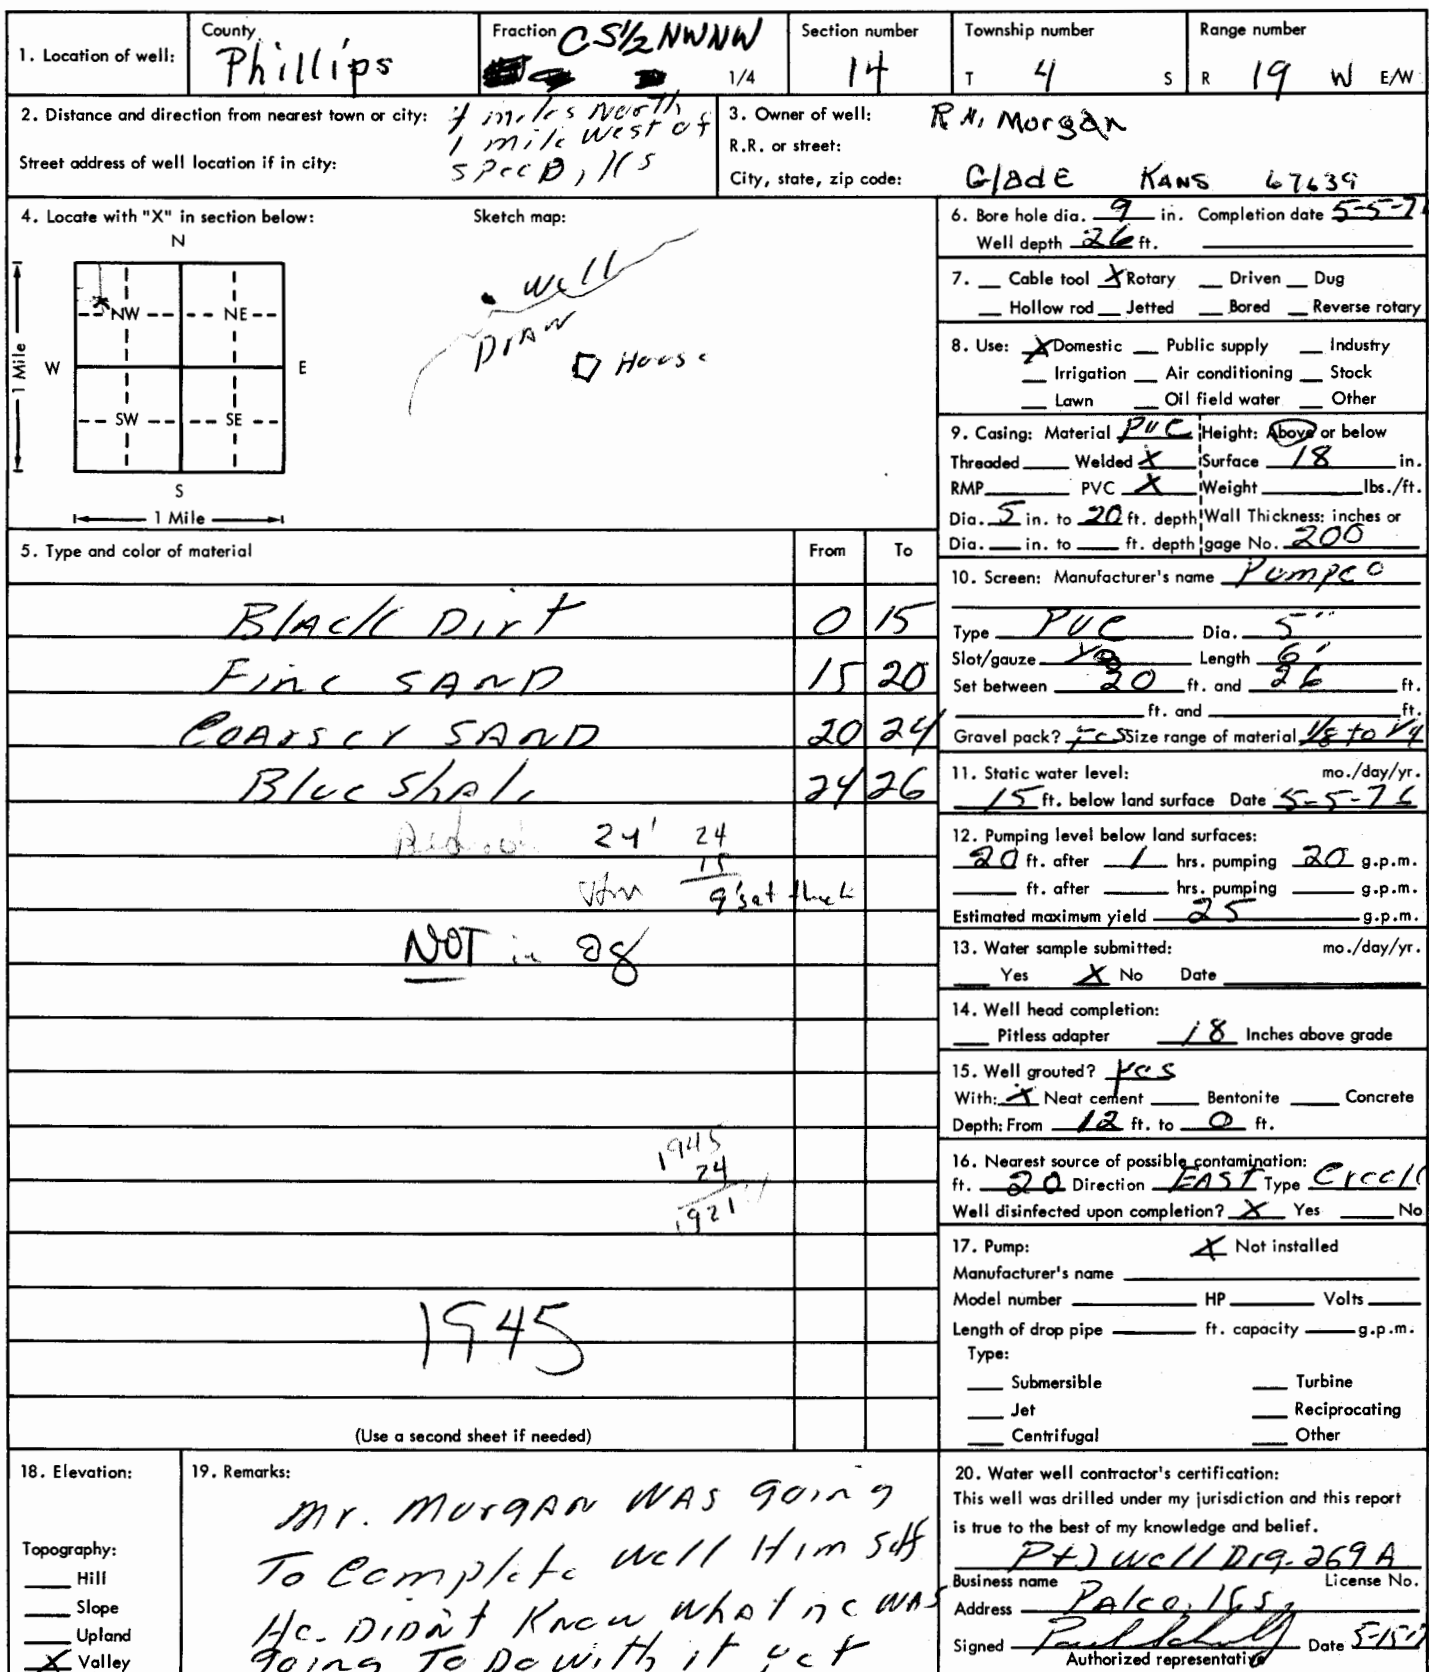 1. Location of well:
County
Phillips
Fraction C S½ NWNW
1/4
Section number
14
Township number
T 4 S
Range number
R 19 W E/W
2. Distance and direction from nearest town or city: miles North
1 mile west of
Street address of well location if in city:
3. Owner of well: Morgan
R.R. or street:
City, state, zip code: Glade Kans 67639
4. Locate with "X" in section below:
Sketch map:
N
NW NE
W E
SW SE
S
1 Mile
1 Mile
well
Draw
House
5. Type and color of material From To
Black Dirt 0 15
Fine SAND 15 20
Coarser SAND 20 24
Blue Shale 24 26
24' 24
15
9' sat thick
NOT in QS
1945
24
1921
1945
(Use a second sheet if needed)
6. Bore hole dia. 9 in. Completion date 5-5-7
Well depth 26 ft.
7. Cable tool X Rotary Driven Dug
Hollow rod Jetted Bored Reverse rotary
8. Use: X Domestic Public supply Industry
Irrigation Air conditioning Stock
Lawn Oil field water Other
9. Casing: Material PVC Height: Above or below
Threaded Welded X Surface 18 in.
RMP PVC X Weight lbs./ft.
Dia. 5 in. to 20 ft. depth Wall Thickness: inches or
Dia. in. to ft. depth gage No. 200
10. Screen: Manufacturer's name Pumpco
Type PVC Dia. 5"
Slot/gauze Length 6'
Set between 20 ft. and 26 ft.
ft. and ft.
Gravel pack? yes Size range of material 1/8 to 1/4
11. Static water level: mo./day/yr.
15 ft. below land surface Date 5-5-76
12. Pumping level below land surfaces:
20 ft. after 1 hrs. pumping 20 g.p.m.
ft. after hrs. pumping g.p.m.
Estimated maximum yield 25 g.p.m.
13. Water sample submitted: mo./day/yr.
Yes X No Date
14. Well head completion:
Pitless adapter 18 Inches above grade
15. Well grouted? yes
With: X Neat cement Bentonite Concrete
Depth: From 12 ft. to 0 ft.
16. Nearest source of possible contamination:
ft. 20 Direction EAST Type Creek
Well disinfected upon completion? X Yes No
17. Pump: X Not installed
Manufacturer's name
Model number HP Volts
Length of drop pipe ft. capacity g.p.m.
Type:
Submersible Turbine
Jet Reciprocating
Centrifugal Other
18. Elevation:
Topography:
Hill
Slope
Upland
X Valley
19. Remarks:
Mr. Morgan was going
To Complete well Himself
He Didn't Know what he was
going To Do with it yet
20. Water well contractor's certification:
This well was drilled under my jurisdiction and this report
is true to the best of my knowledge and belief.
well Drg. 269 A
Business name License No.
Address Palco, Ks
Signed Date 5-15-7
Authorized representative